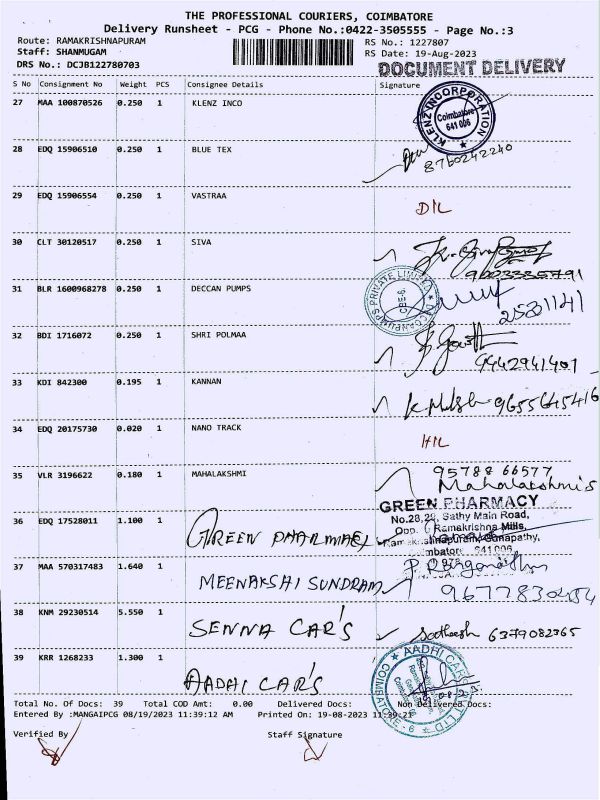 THE PROFESSIONAL COURIERS, COIMBATORE
Delivery Runsheet - PCG - Phone No.:0422-3505555 - Page No.:3
Route: RAMAKRISHNAPURAM RS No.: 1227807
Staff: SHANMUGAM RS Date: 19-Aug-2023
DRS No.: DCJB122780703 DOCUMENT DELIVERY
S No Consignment No Weight PCS Consignee Details Signature
27 MAA 100870526 0.250 1 KLENZ INCO
KLENZ INCORPORATION
Coimbatore
641 006
28 EDQ 15906510 0.250 1 BLUE TEX
8760242240
29 EDQ 15906554 0.250 1 VASTRAA
D/L
30 CLT 30120517 0.250 1 SIVA
9003335791
31 BLR 1600968278 0.250 1 DECCAN PUMPS
DECCAN PUMPS PRIVATE LIMITED
CBE-6
2531141
32 BDI 1716072 0.250 1 SHRI POLMAA
9442941401
33 KDI 842300 0.195 1 KANNAN
9655645416
34 EDQ 20175730 0.020 1 NANO TRACK
35 VLR 3196622 0.180 1 MAHALAKSHMI
95788 66577
Mahalakshmi
36 EDQ 17528011 1.100 1 GREEN PHARMACY
GREEN PHARMACY
No.28,29, Sathy Main Road,
Opp. Ramakrishna Mills,
Ramakrishnapuram, Ganapathy,
Coimbatore 641 006
37 MAA 570317483 1.640 1 MEENAKSHI SUNDRAM
P. Ranganathan
9677830484
38 KNM 29230514 5.550 1 SENNA CAR'S
Satheesh 6379082365
39 KRR 1268233 1.300 1 AADHI CAR'S
AADHI CAR
PVT LTD
COIMBATORE - 6
Total No. Of Docs: 39 Total COD Amt: 0.00 Delivered Docs: Non Delivered Docs:
Entered By :MANGAIPCG 08/19/2023 11:39:12 AM Printed On: 19-08-2023 11:39:21
Verified By Staff Signature